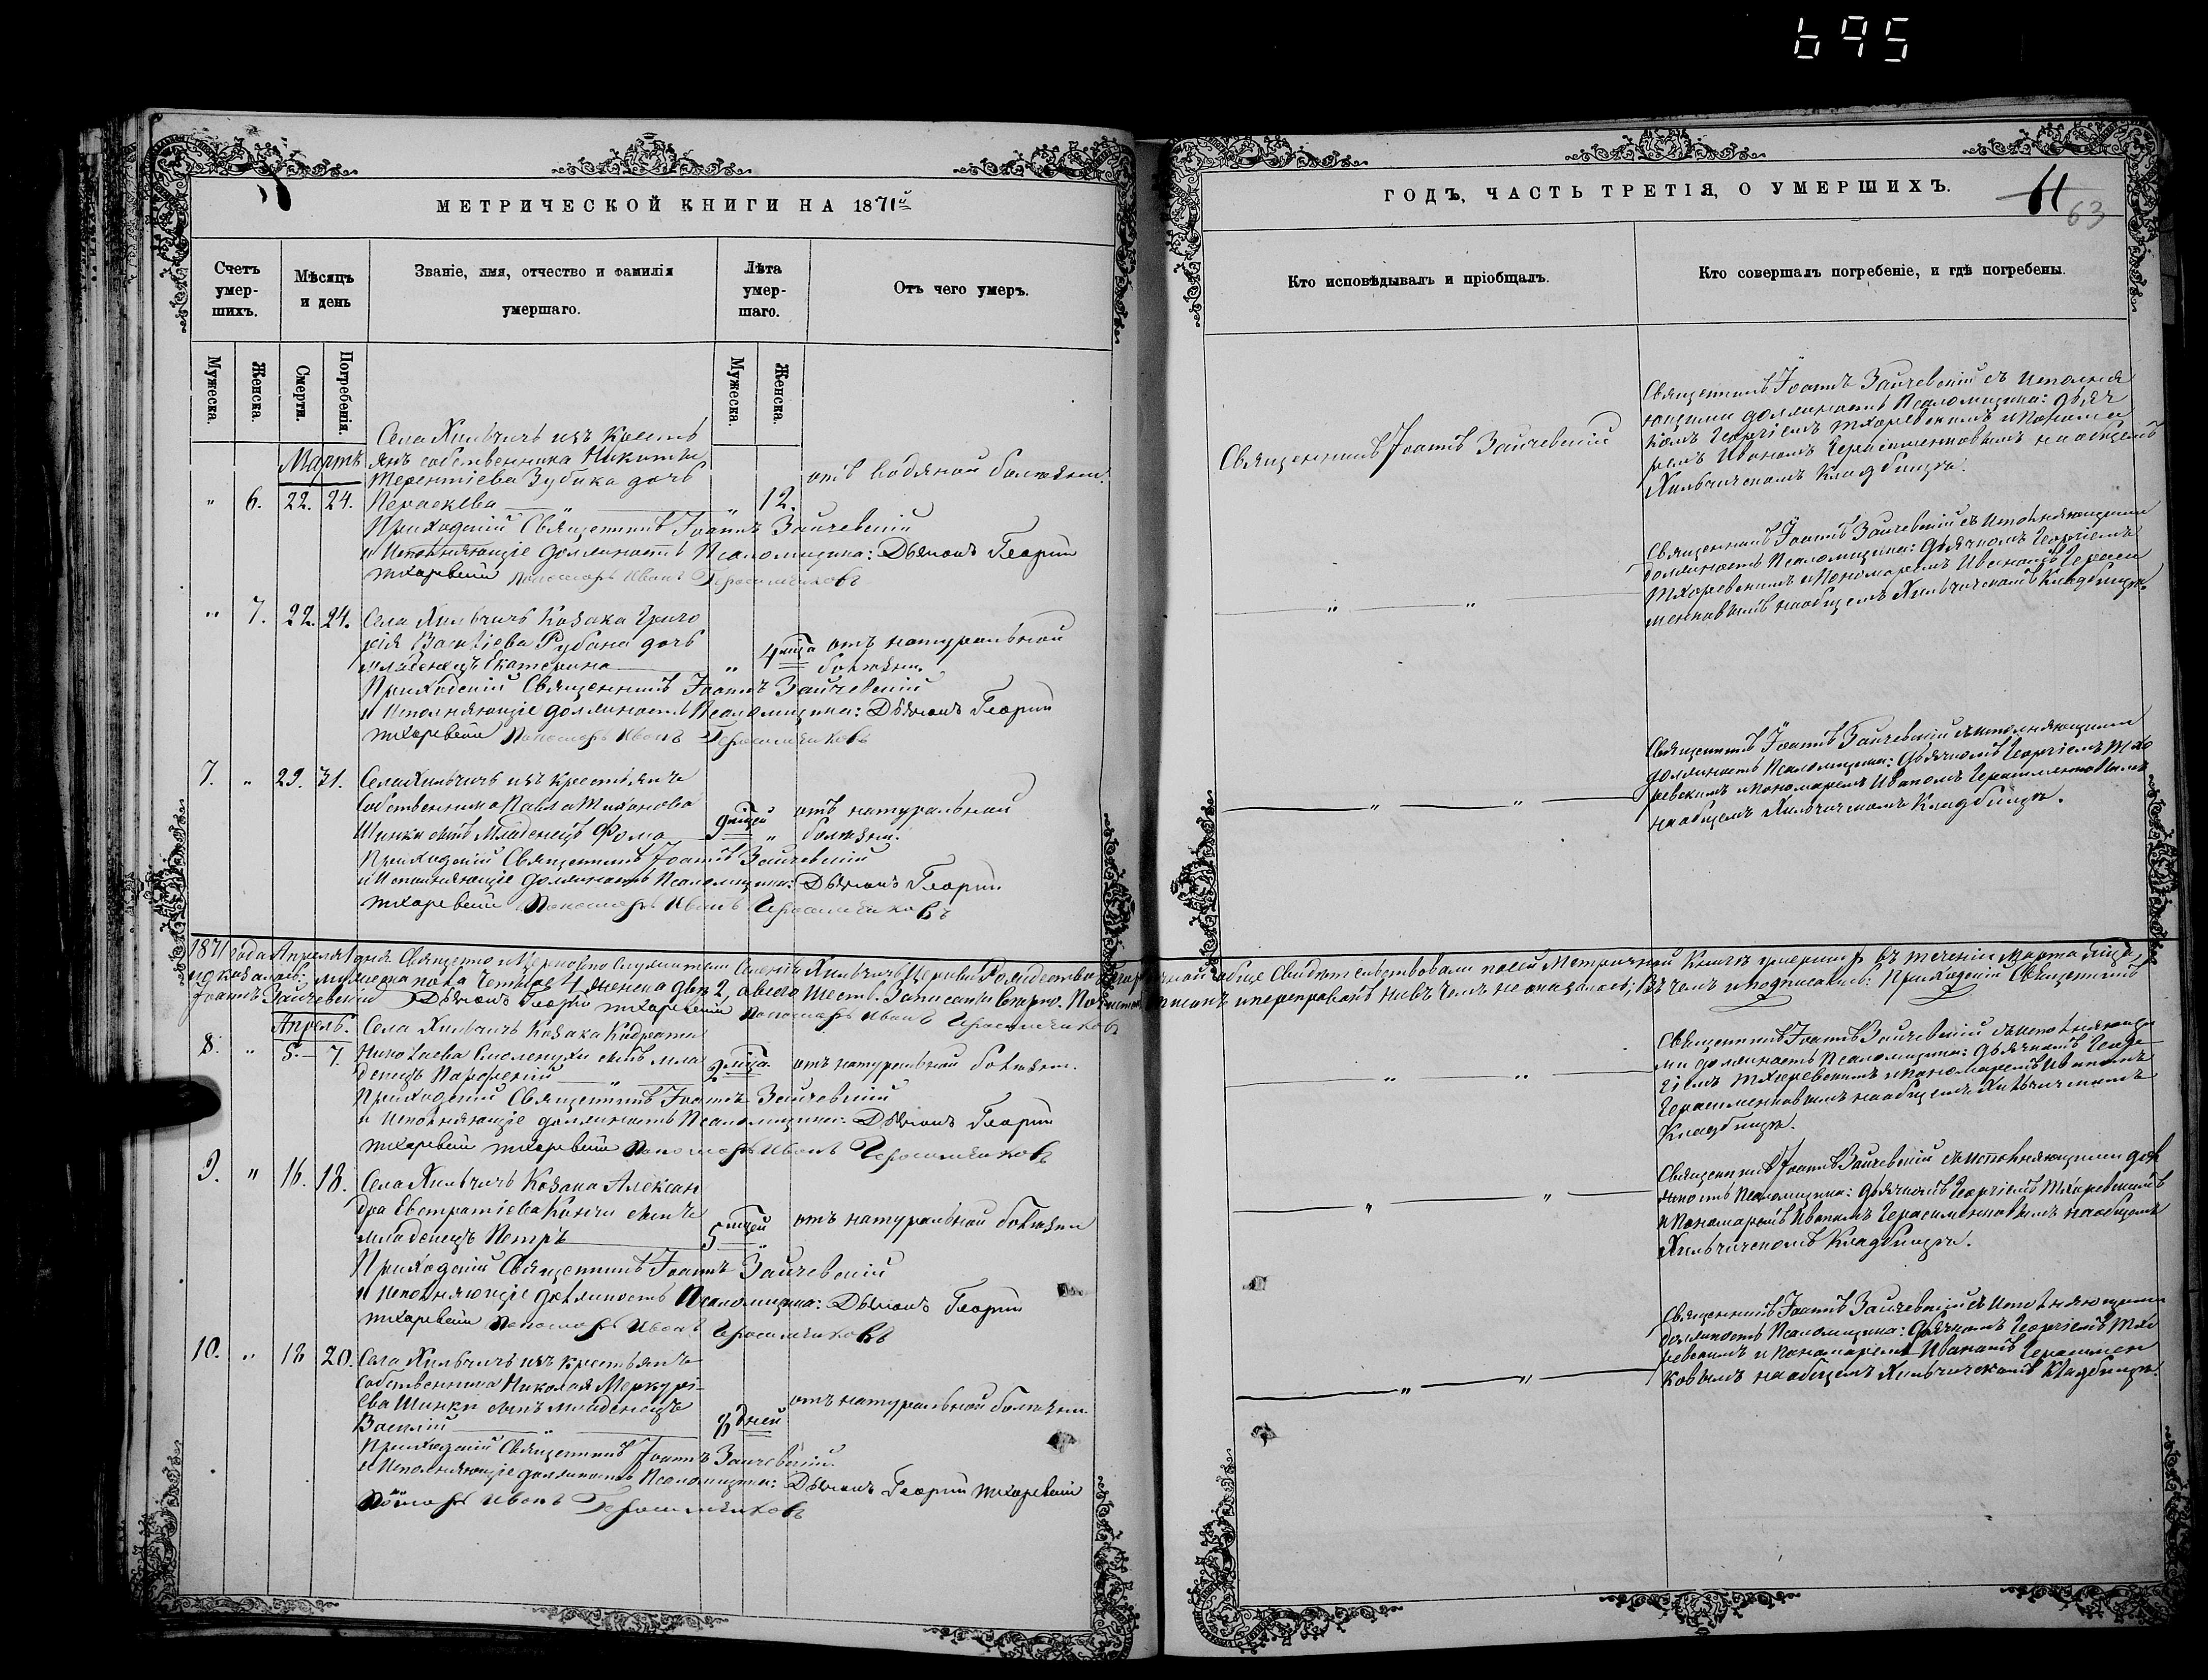 695
МЕТРИЧЕСКОЙ КНИГИ НА 1871й
Счетъ умер-шихъ.
Мѣсяцъ и день
Званіе, имя, отчество и фамилія умершаго.
Лѣта умер-шаго.
Отъ чего умеръ.
Мужеска.
Женска.
Смерти.
Погребенія.
Мужеска.
Женска.
Мартъ
Села Хильчичъ изъ Кресть
янъ собственника Никиты
Терентіева Зубика дочь
" 6. 22. 24. Параскева " " 12. отъ водяной болѣзни.
Приходскій Священникъ Іоаннъ Зайчевскій
и Исполняющіе должность Псаломщика: Дьячокъ Георгій
Тихоревскій Пономарь Иванъ Герасименковъ
" 7. 22. 24. Села Хильчичъ Козака Григо
рія Василіева Рубана дочь
младенецъ Екатерина " 4 мца отъ натуральной
болѣзни.
Приходскій Священникъ Іоаннъ Зайчевскій
и Исполняющіе должность Псаломщика: Дьячокъ Георгій
Тихоревскій Пономарь Иванъ Герасименковъ
7. " 29. 31. Села Хильчичъ изъ крестьянъ
собственника Павла Тихонова
Шинки сынъ младенецъ Фома 9 мцей " отъ натуральной
болѣзни.
Приходскій Священникъ Іоаннъ Зайчевскій
и Исполняющіе должность Псаломщика: Дьячокъ Георгій
Тихоревскій Пономарь Иванъ Герасименковъ
1871 года Апреля 1 дня Священно и Церковно Служители Села Хильчичъ Церкви Рождество
мужеска пола четыре 4, женска два 2, а всего шесть. Записаны вѣрно.
Іоаннъ Зайчевскій Дьячокъ Георгій Тихоревскій Пономарь Иванъ Герасименковъ
Апрель.
8. " 5. 7. Села Хильчичъ Козака Кодрата
Николаева сынъ мла
денецъ Парфеній 2 мца. отъ натуральной болѣзни.
Приходскій Священникъ Іоаннъ Зайчевскій
и Исполняющіе должность Псаломщика: Дьячокъ Георгій
Тихоревскій Тихоревскій Пономарь Иванъ Герасименковъ
9. " 16. 18. Села Хильчичъ Козака Алексан
дра Евстратіева сынъ
младенецъ Петръ 5 мцей " отъ натуральной болѣзни
Приходскій Священникъ Іоаннъ Зайчевскій
и Исполняющіе должность Псаломщика: Дьячокъ Георгій
Тихоревскій Пономарь Иванъ Герасименковъ
10. " 18 20. Села Хильчичъ изъ крестьянъ
собственника Николая Меркурі-
ева Шинки сынъ младенецъ
Василій " 8 дней отъ натуральной болѣзни.
Приходскій Священникъ Іоаннъ Зайчевскій.
и Исполняющіе должность Псаломщика: Дьячокъ Георгій Тихоревскій
Пономарь Иванъ Герасименковъ
ГОДЪ, ЧАСТЬ ТРЕТІЯ, О УМЕРШИХЪ.
61
63
Кто исповѣдывалъ и пріобщалъ.
Кто совершалъ погребеніе, и гдѣ погребены.
Священникъ Іоаннъ Зайчевскій
Священникъ Іоаннъ Зайчевскій съ исполня
ющими должность Псаломщика: дьяч
комъ Георгіемъ Тихоревскимъ и Понома
ремъ Иваномъ Герасименковымъ на общемъ
Хильчичскомъ Кладбищѣ.
" "
Священникъ Іоаннъ Зайчевскій съ исполняющими
должность Псаломщика: дьячкомъ Георгіемъ
Тихоревскимъ и Пономаремъ Иваномъ Гераси
менковымъ на общемъ Хильчичскомъ Кладбищѣ.
" "
Священникъ Іоаннъ Зайчевскій съ исполняющими
должность Псаломщика: дьячкомъ Георгіемъ Тихо
ревскимъ и пономаремъ Иваномъ Герасименковымъ
на общемъ Хильчичскомъ Кладбищѣ.
свидѣтельствовали по сей Метричной Книгѣ умершихъ въ теченіи Марта мца,
и переправокъ ни въ чемъ не оказалось; въ чемъ и подписались: Приходскій Священникъ
" "
Священникъ Іоаннъ Зайчевскій съ исполняющи
ми должность Псаломщика: дьячкомъ Геор
гіемъ Тихоревскимъ и пономаремъ Иваномъ
Герасименковымъ на общемъ Хильчичскомъ
Кладбищѣ.
" "
Священникъ Іоаннъ Зайчевскій съ исполняющими дол
жность Псаломщика: дьячкомъ Георгіемъ Тихоревскимъ
и Пономаремъ Иваномъ Герасименковымъ на общемъ
Хильчичскомъ Кладбищѣ.
" "
Священникъ Іоаннъ Зайчевскій съ исполняющими
должность Псаломщика: дьячкомъ Георгіемъ Тихо
ревскимъ и пономаремъ Иваномъ Герасимен
ковымъ на общемъ Хильчичскомъ Кладбищѣ.